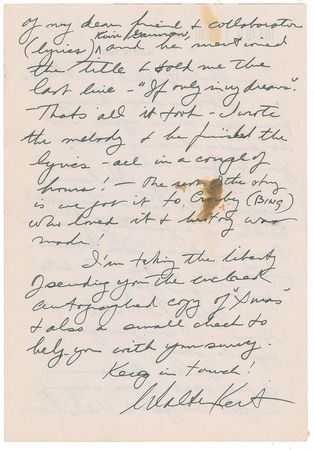 of my dear friend & collaborator
(lyrics) Kim Gannon, and he mentioned
the title & told me the
last line – "If only in my dreams".
Thats all it took – I wrote
the melody & he finished the
lyrics – all in a couple of
hours! – The rest of the story
is we got it to Crosby (BING)
who loved it & history was
made!
I'm taking the liberty
of sending you the enclosed
autographed copy of "Xmas"
& also a small check to
help you with your survey.
Keep in touch!
Walter Kent